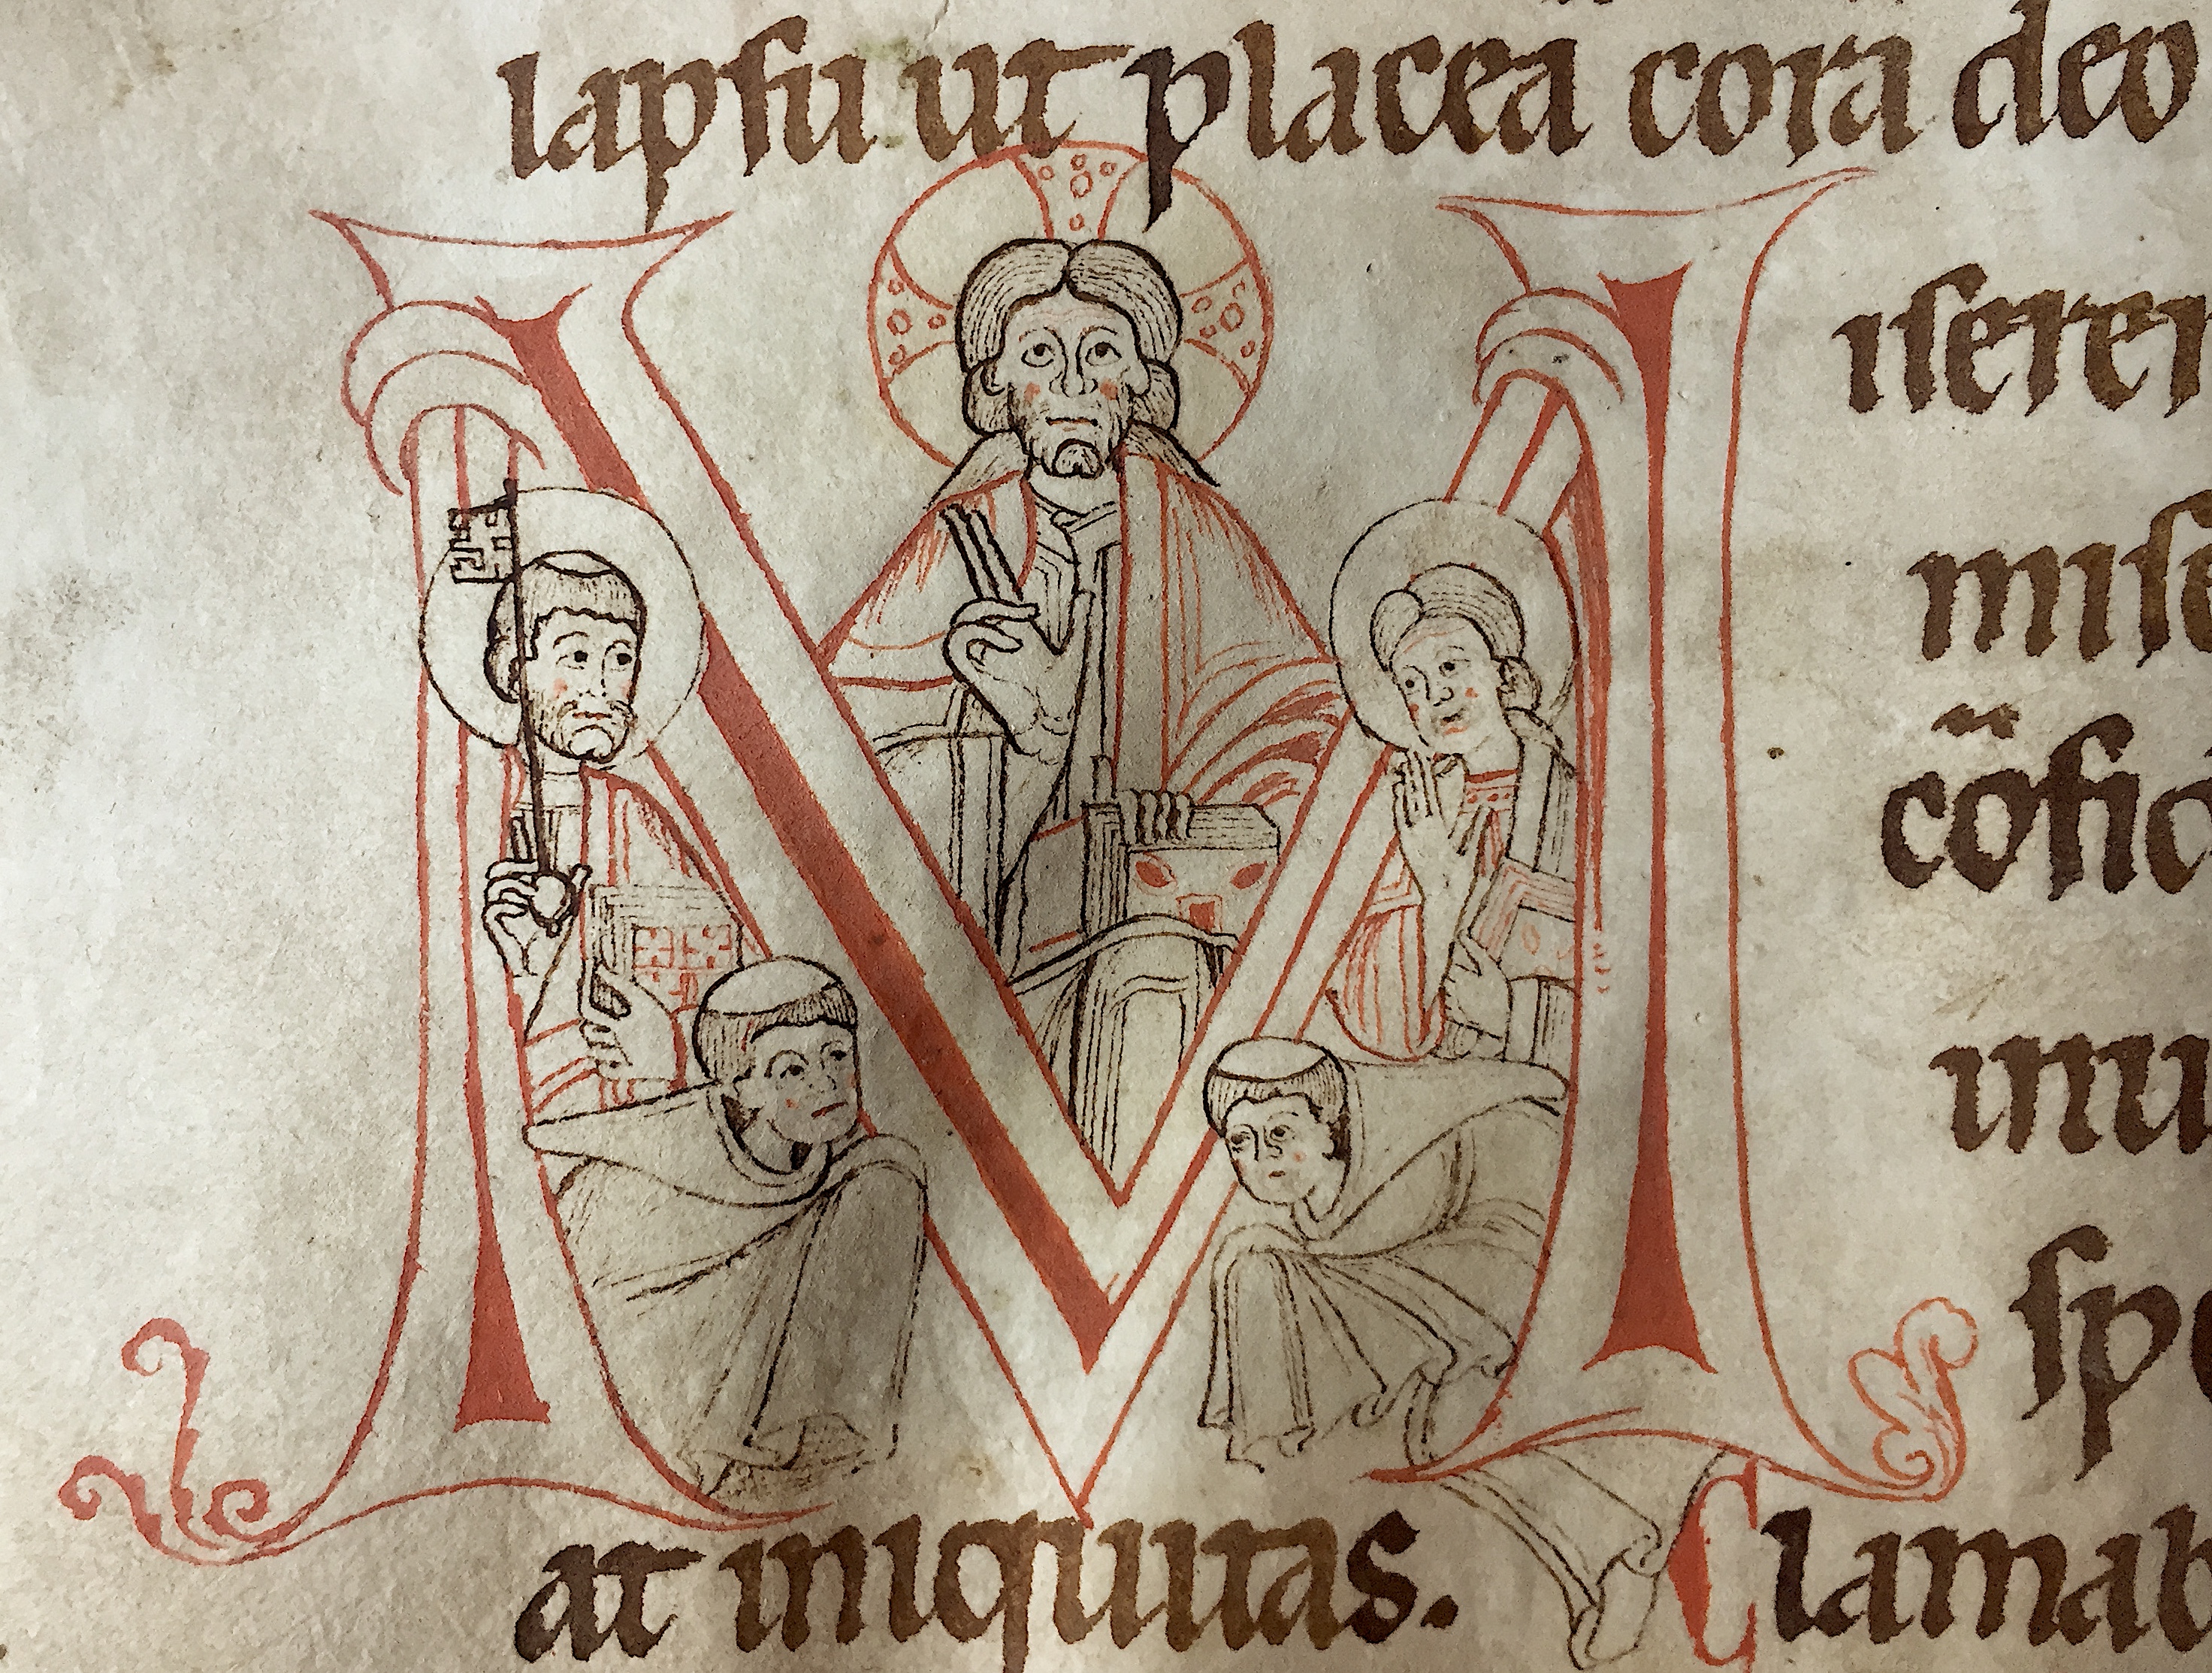 lapsu ut placeā corā deo
Miserer
mise
cōfid
inu
spe
at iniquitas. Clamab